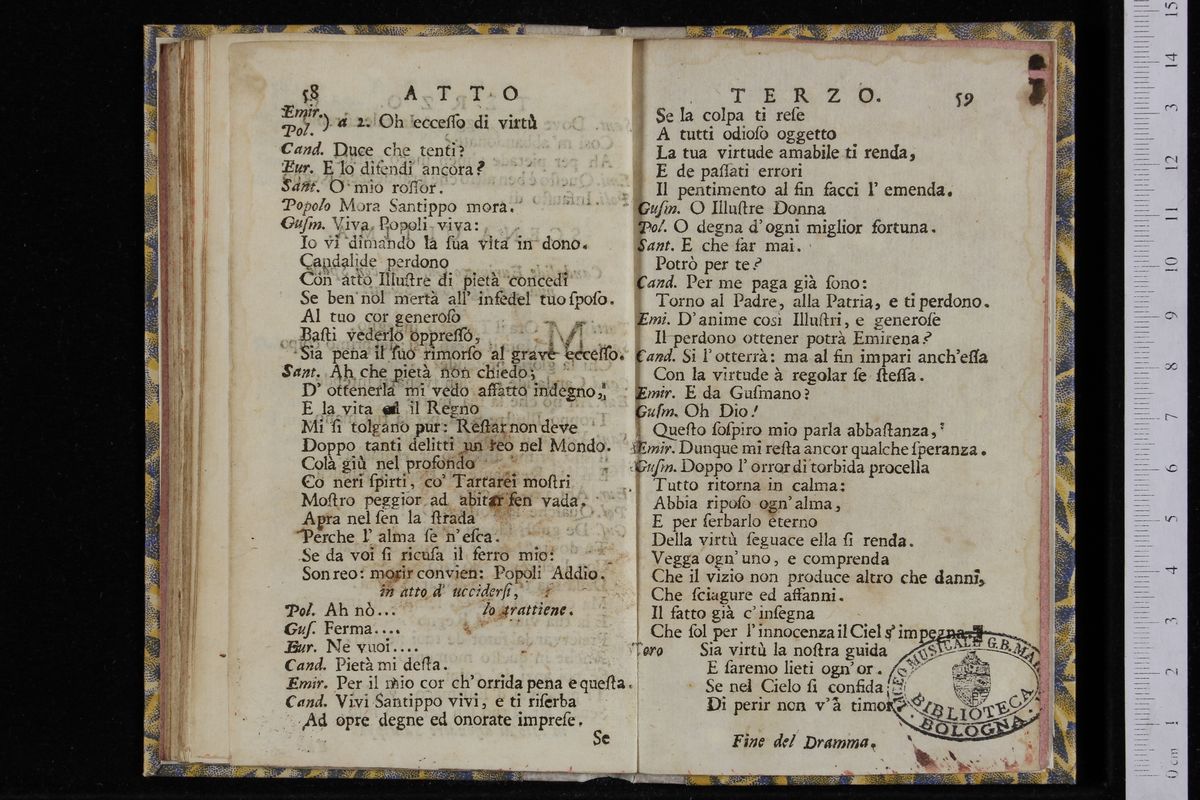 58 ATTO
Emir.
Pol. ) a 2. Oh eccesso di virtù
Cand. Duce che tenti?
Eur. E lo difendi ancora?
Sant. O mio rossor.
Popolo Mora Santippo mora.
Gusm. Viva Popoli viva:
Io vi dimando la sua vita in dono.
Candalide perdono
Con atto Illustre di pietà concedi
Se ben nol mertà all' infedel tuo sposo.
Al tuo cor generoso
Basti vederlo oppresso,
Sia pena il suo rimorso al grave eccesso.
Sant. Ah che pietà non chiedo;
D' ottenerla mi vedo affatto indegno,
E la vita ed il Regno
Mi si tolgano pur: Restar non deve
Doppo tanti delitti un reo nel Mondo.
Colà giù nel profondo
Co neri spirti, co' Tartarei mostri
Mostro peggior ad abitar sen vada.
Apra nel sen la strada
Perche l' alma se n' esca.
Se da voi si ricusa il ferro mio:
Son reo: morir convien: Popoli Addio.
in atto d' uccidersi,
Pol. Ah nò... lo trattiene.
Gus. Ferma....
Eur. Ne vuoi....
Cand. Pietà mi desta.
Emir. Per il mio cor ch' orrida pena e questa.
Cand. Vivi Santippo vivi, e ti riserba
Ad opre degne ed onorate imprese.
Se
TERZO. 59
Se la colpa ti rese
A tutti odioso oggetto
La tua virtude amabile ti renda,
E de passati errori
Il pentimento al fin facci l' emenda.
Gusm. O Illustre Donna
Pol. O degna d' ogni miglior fortuna.
Sant. E che far mai.
Potrò per te?
Cand. Per me paga già sono:
Torno al Padre, alla Patria, e ti perdono.
Emi. D' anime così Illustri, e generose
Il perdono ottener potrà Emirena?
Cand. Si l' otterrà: ma al fin impari anch' essa
Con la virtude à regolar se stessa.
Emir. E da Gusmano?
Gusm. Oh Dio!
Questo sospiro mio parla abbastanza,
Emir. Dunque mi resta ancor qualche speranza.
Gusm. Doppo l' orror di torbida procella
Tutto ritorna in calma:
Abbia riposo ogn' alma,
E per serbarlo eterno
Della virtù seguace ella si renda.
Vegga ogn' uno, e comprenda
Che il vizio non produce altro che danni,
Che sciagure ed affanni.
Il fatto già c' insegna
Che sol per l' innocenza il Ciel s' impegna.
Coro Sia virtù la nostra guida
E saremo lieti ogn' or.
Se nel Cielo si confida
Di perir non v' à timor
Fine del Dramma.
LICEO MUSICALE G. B. MAR
BIBLIOTECA
BOLOGNA